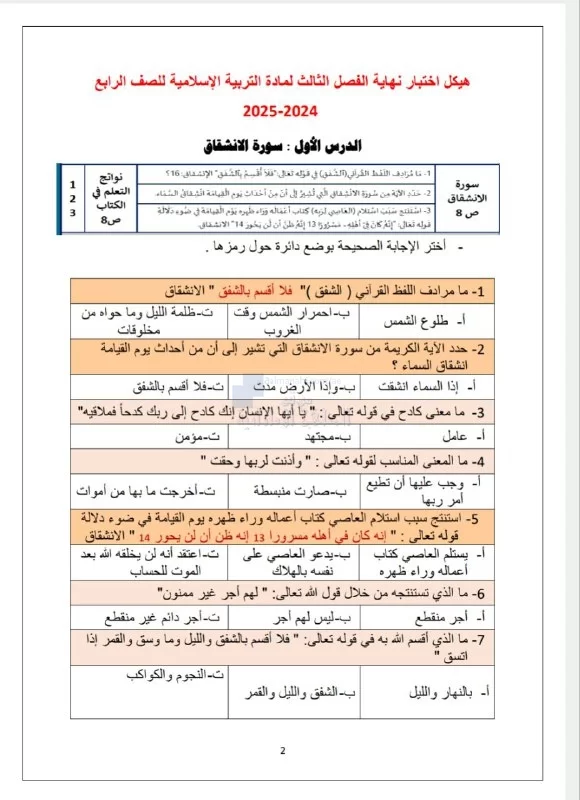 هيكل اختبار نهاية الفصل الثالث لمادة التربية الإسلامية للصف الرابع
2025-2024
الدرس الأول : سورة الانشقاق
سورة الانشقاق ص 8
1- مَا مُرَادِفُ اللَّفْظِ القُرْآنِيِّ (الشَّفَقِ) فِي قَوْلِهِ تَعَالَى: "فَلَا أُقْسِمُ بِالشَّفَقِ" الانشقاق: 16؟
2- حَدّدَ الآيَةَ مِنْ سُورَةِ الِانْشِقَاقِ الَّتِي تُشِيرُ إِلَى أَنَّ مِنْ أَحْدَاثِ يَوْمِ القِيَامَةِ انْشِقَاقُ السَّمَاءِ.
3- اسْتَنْتِجْ سَبَبَ اسْتِلَامِ (العَاصِي لِرَبِّهِ) كِتَابَ أَعْمَالِهِ وَرَاءَ ظَهْرِهِ يَوْمَ القِيَامَةِ فِي ضَوْءِ دَلَالَةِ
قَوْلِهِ تَعَالَى: "إِنَّهُ كَانَ فِي أَهْلِهِ مَسْرُورًا 13 إِنَّهُ ظَنَّ أَنْ لَنْ يَحُورَ 14" الانشقاق.
نواتج التعلم في الكتاب ص8
1
2
3
- أختر الإجابة الصحيحة بوضع دائرة حول رمزها .
1- ما مرادف اللفظ القرآني ( الشفق )" فلا أقسم بالشفق " الانشقاق
أ- طلوع الشمس
ب-احمرار الشمس وقت الغروب
ت-ظلمة الليل وما حواه من مخلوقات
2- حدد الآية الكريمة من سورة الانشقاق التي تشير إلى أن من أحداث يوم القيامة
انشقاق السماء ؟
أ- إذا السماء انشقت
ب-وإذا الأرض مدت
ت-فلا أقسم بالشفق
3- ما معنى كادح في قوله تعالى : " يا أيها الإنسان إنك كادح إلى ربك كدحاً فملاقيه"
أ- عامل
ب-مجتهد
ت-مؤمن
4- ما المعنى المناسب لقوله تعالى : " وأذنت لربها وحقت "
أ- وجب عليها أن تطيع أمر ربها
ب-صارت منبسطة
ت-أخرجت ما بها من أموات
5- استنتج سبب استلام العاصي كتاب أعماله وراء ظهره يوم القيامة في ضوء دلالة
قوله تعالى : " إنه كان في أهله مسرورا 13 إنه ظن أن لن يحور 14 " الانشقاق
أ- يستلم العاصي كتاب أعماله وراء ظهره
ب-يدعو العاصي على نفسه بالهلاك
ت-اعتقد أنه لن يخلقه الله بعد الموت للحساب
6- ما الذي تستنتجه من خلال قول الله تعالى: " لهم أجر غير ممنون"
أ- أجر منقطع
ب-ليس لهم أجر
ت-أجر دائم غير منقطع
7- ما الذي أقسم الله به في قوله تعالى: " فلا أقسم بالشفق والليل وما وسق والقمر إذا
اتسق "
أ- بالنهار والليل
ب-الشفق والليل والقمر
ت-النجوم والكواكب
2